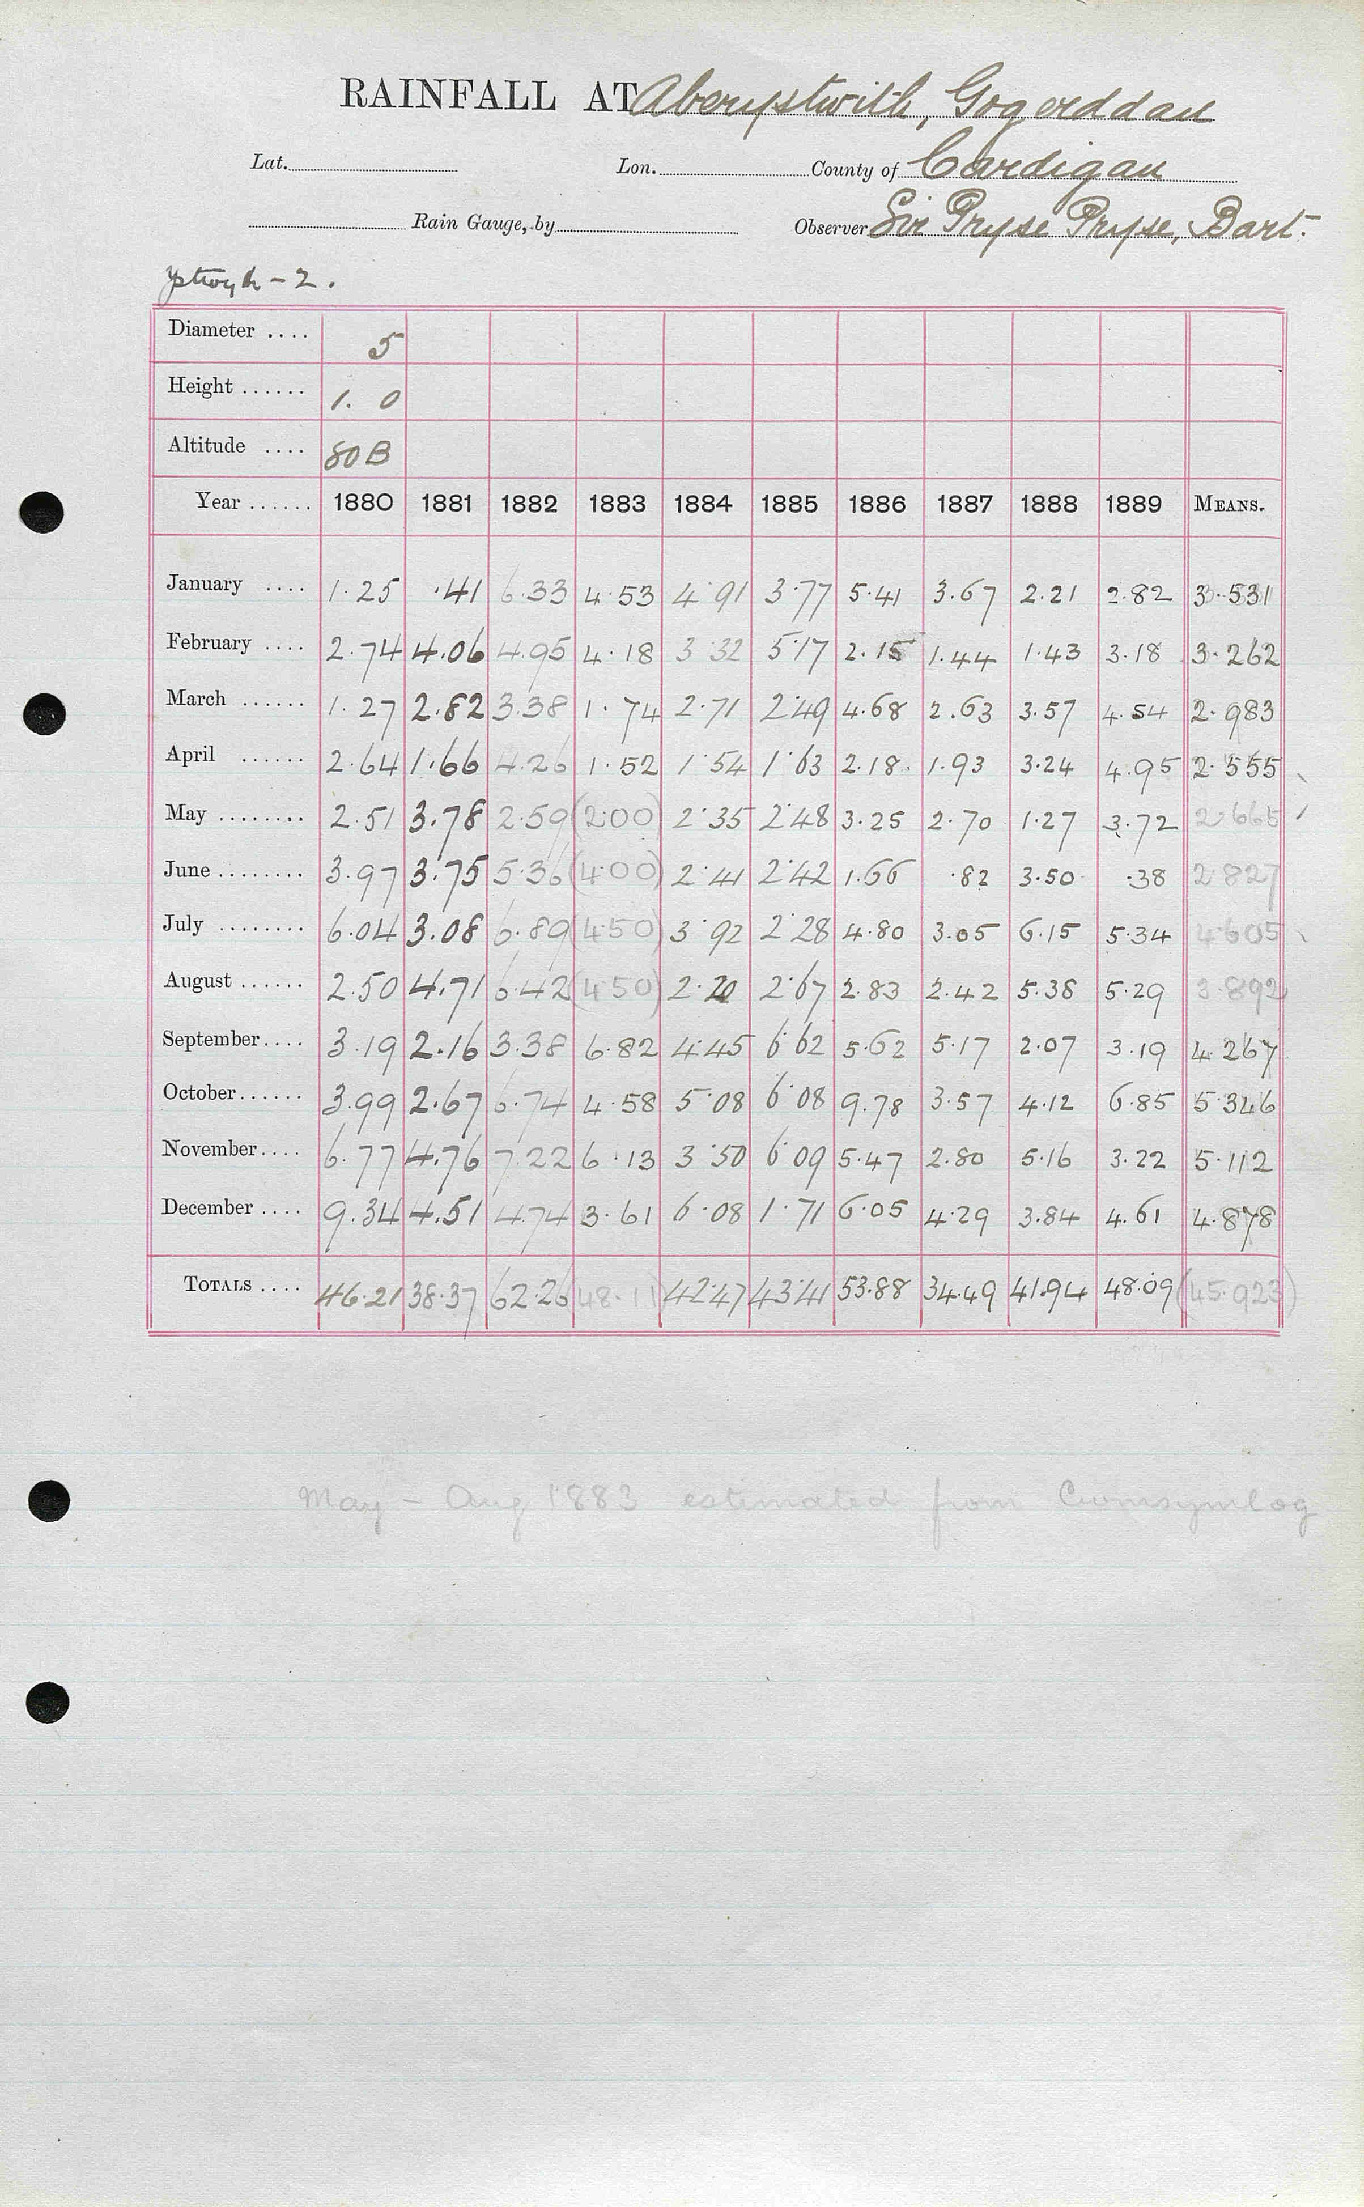 RAINFALL AT Aberystwith, Gogerddan
Lat. Lon. County of Cardigan
Rain Gauge, by Observer Sir Pryse Pryse, Bart.
- 2.
Diameter .... 5
Height ...... 1. 0
Altitude .... 80 B
Year ...... 1880 1881 1882 1883 1884 1885 1886 1887 1888 1889 MEANS.
January .... 1.25 .41 6.33 4.53 4.91 3.77 5.41 3.67 2.21 2.82 3.531
February .... 2.74 4.06 4.95 4.18 3.32 5.17 2.15 1.44 1.43 3.18 3.262
March ...... 1.27 2.82 3.38 1.74 2.71 2.49 4.68 2.63 3.57 4.54 2.983
April ...... 2.64 1.66 4.26 1.52 1.54 1.63 2.18 1.93 3.24 4.95 2.555
May ........ 2.51 3.78 2.59 (2.00) 2.35 2.48 3.25 2.70 1.27 3.72 2.665
June ........ 3.97 3.75 5.36 (4.00) 2.41 2.42 1.66 .82 3.50 .38 2.827
July ........ 6.04 3.08 6.89 (4.50) 3.92 2.28 4.80 3.05 6.15 5.34 4.605
August ...... 2.50 4.71 6.42 (4.50) 2.20 2.67 2.83 2.42 5.38 5.29 3.892
September .... 3.19 2.16 3.38 6.82 4.45 6.62 5.62 5.17 2.07 3.19 4.267
October ...... 3.99 2.67 6.74 4.58 5.08 6.08 9.78 3.57 4.12 6.85 5.346
November .... 6.77 4.76 7.22 6.13 3.50 6.09 5.47 2.80 5.16 3.22 5.112
December .... 9.34 4.51 4.74 3.61 6.08 1.71 6.05 4.29 3.84 4.61 4.878
TOTALS .... 46.21 38.37 62.26 48.11 42.47 43.41 53.88 34.49 41.94 48.09 (45.923)
May - Aug 1883 estimated from Cwmsymlog